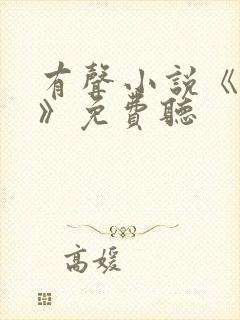 有聲小說《
》免費聽
高媛